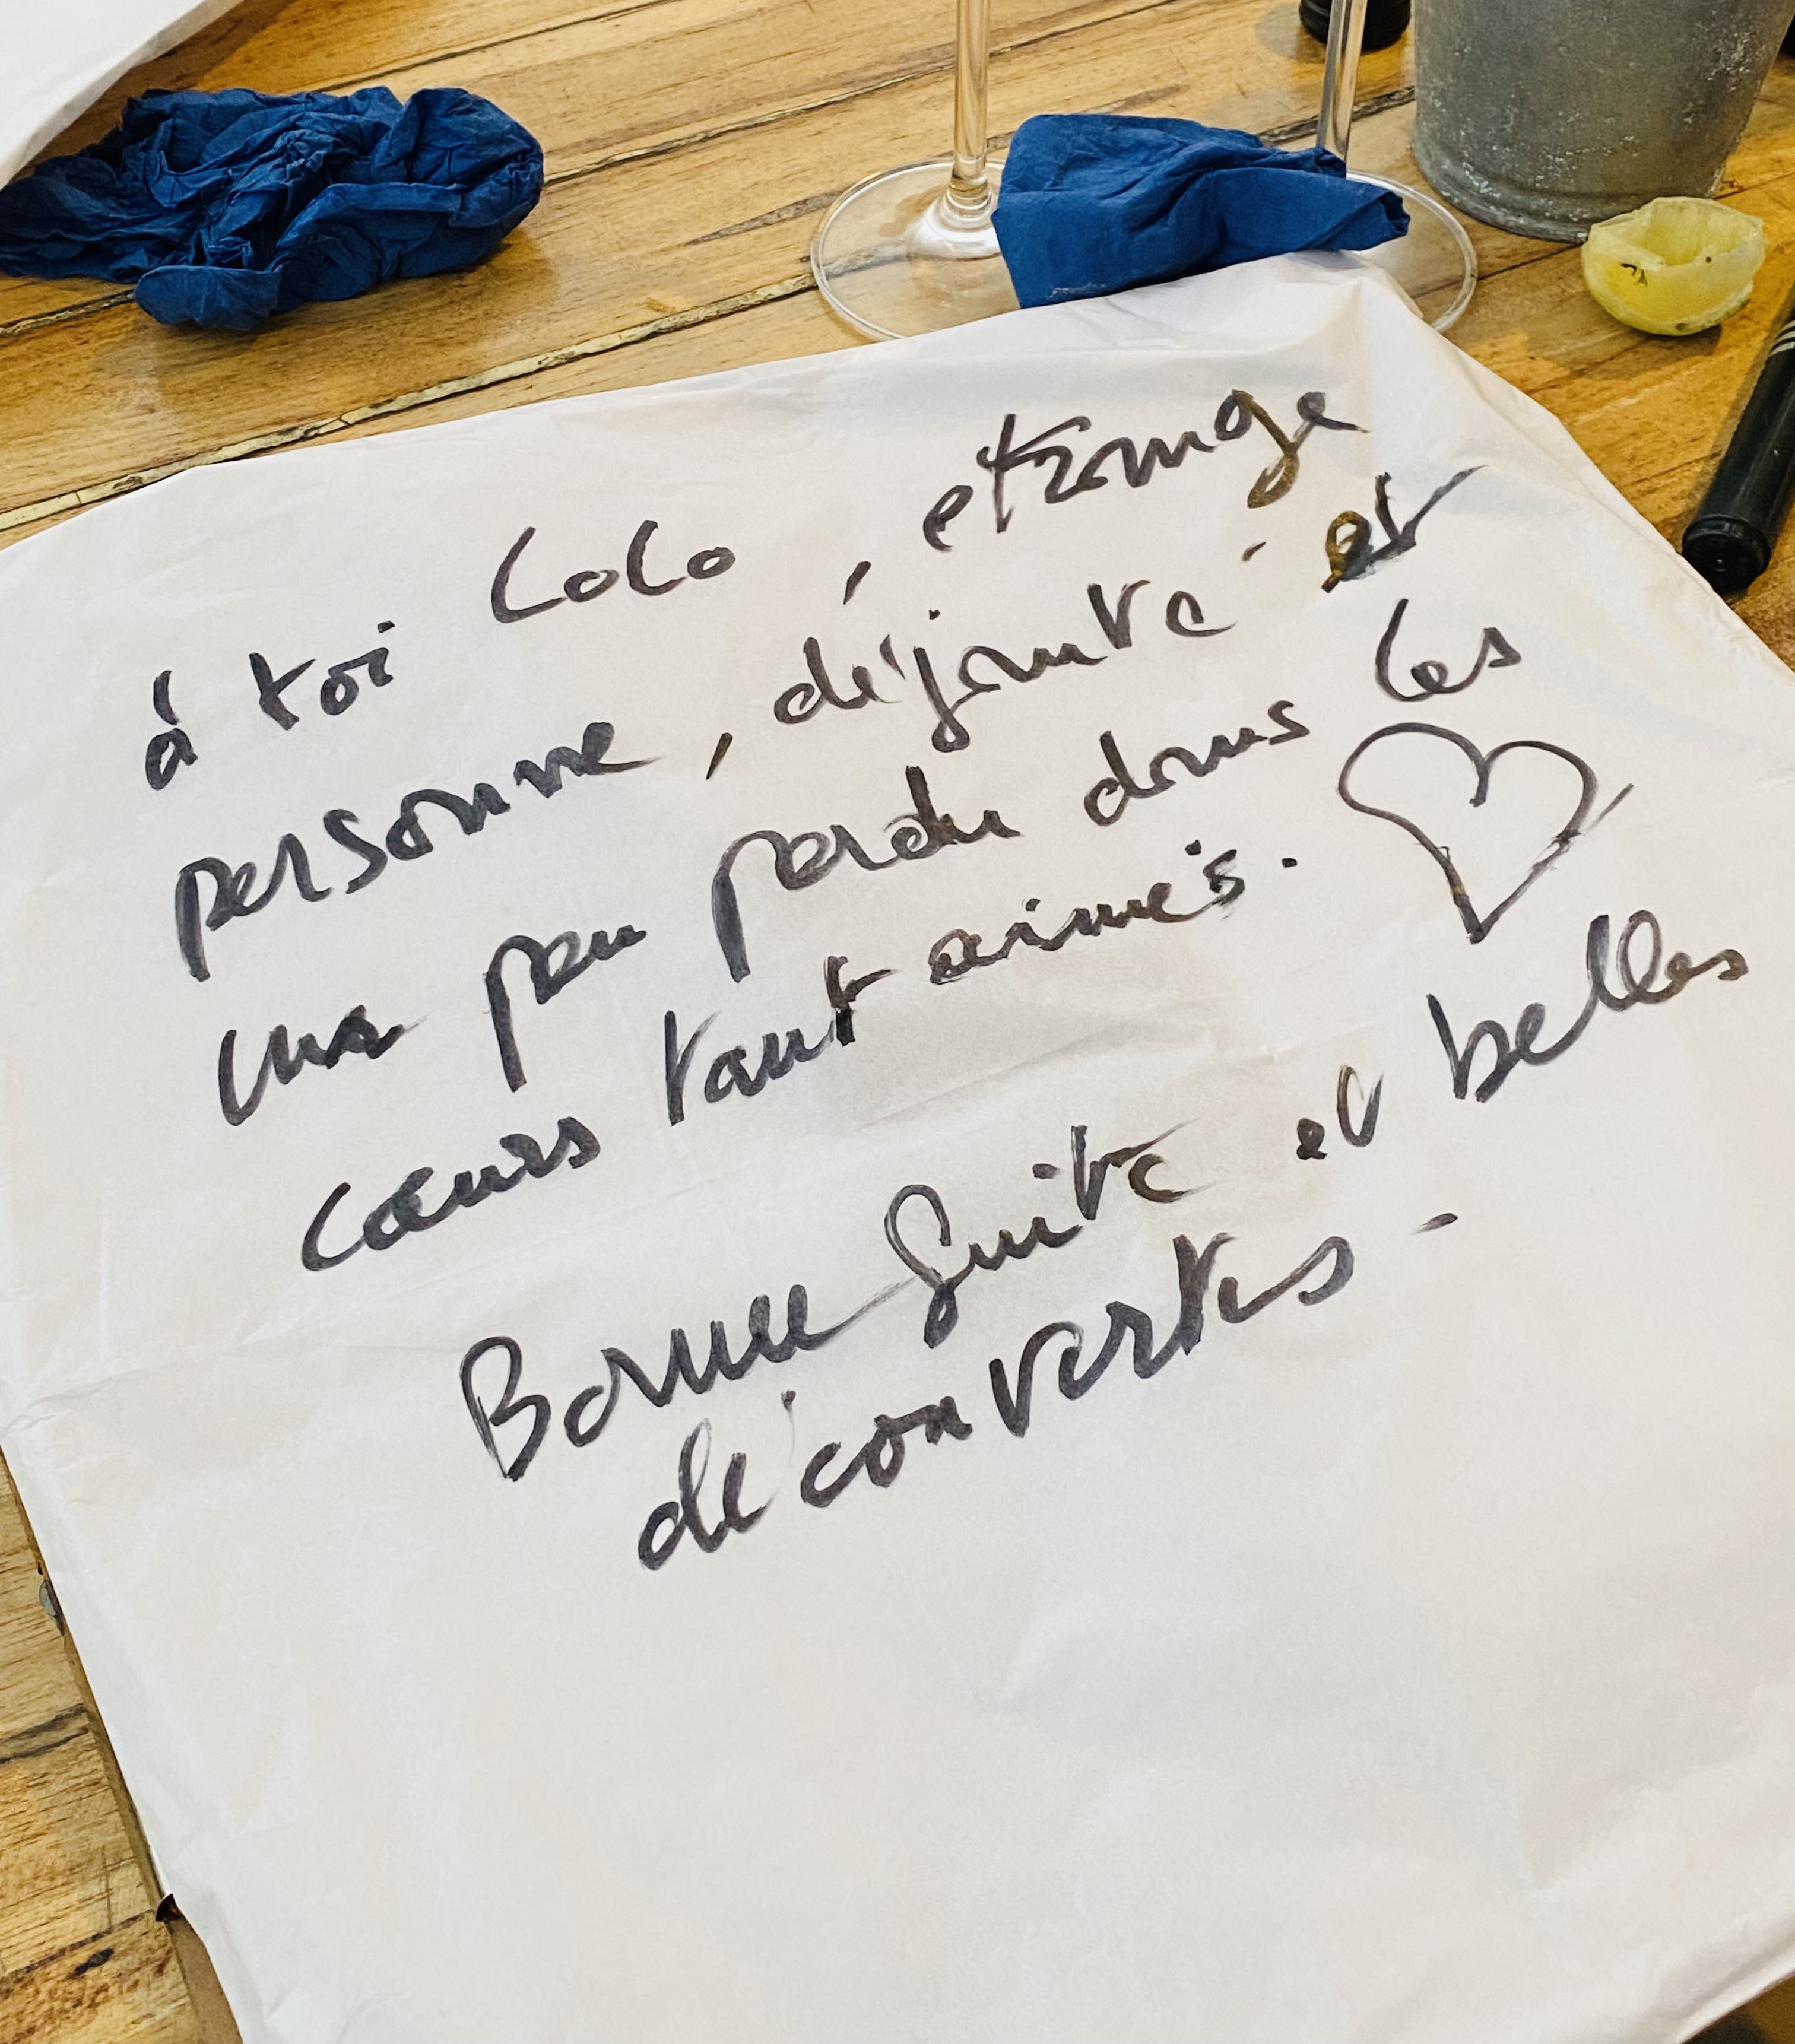 à toi Lolo, etrange
personne, déjanté et
un peu perdu dans les
cœurs tant aimés.
Bonne suite et belles
découvertes -